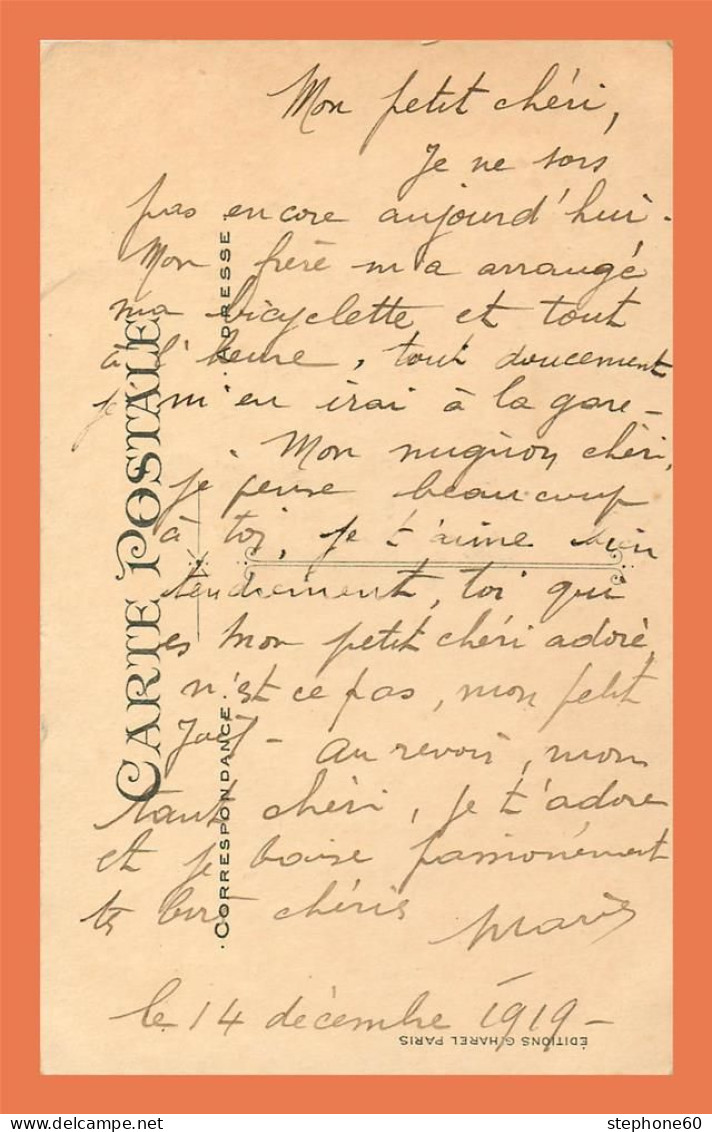 Mon petit chéri,
Je ne sors
pas encore aujourd'hui.
Mon frère m'a arrangé
ma bicyclette et tout
à l'heure, tout doucement
je m'en irai à la gare -
Mon mignon chéri,
je pense beaucoup
à toi, je t'aime bien
tendrement, toi qui
es mon petit chéri adoré,
n'est ce pas, mon petit
- Au revoir, mon
tant chéri, je t'adore
et je baise passionément
tes chéris
le 14 décembre 1919 -
CARTE POSTALE
· CORRESPONDANCE ·
· ADRESSE ·
ÉDITIONS G. HAREL PARIS
delcampe.net
stephone60